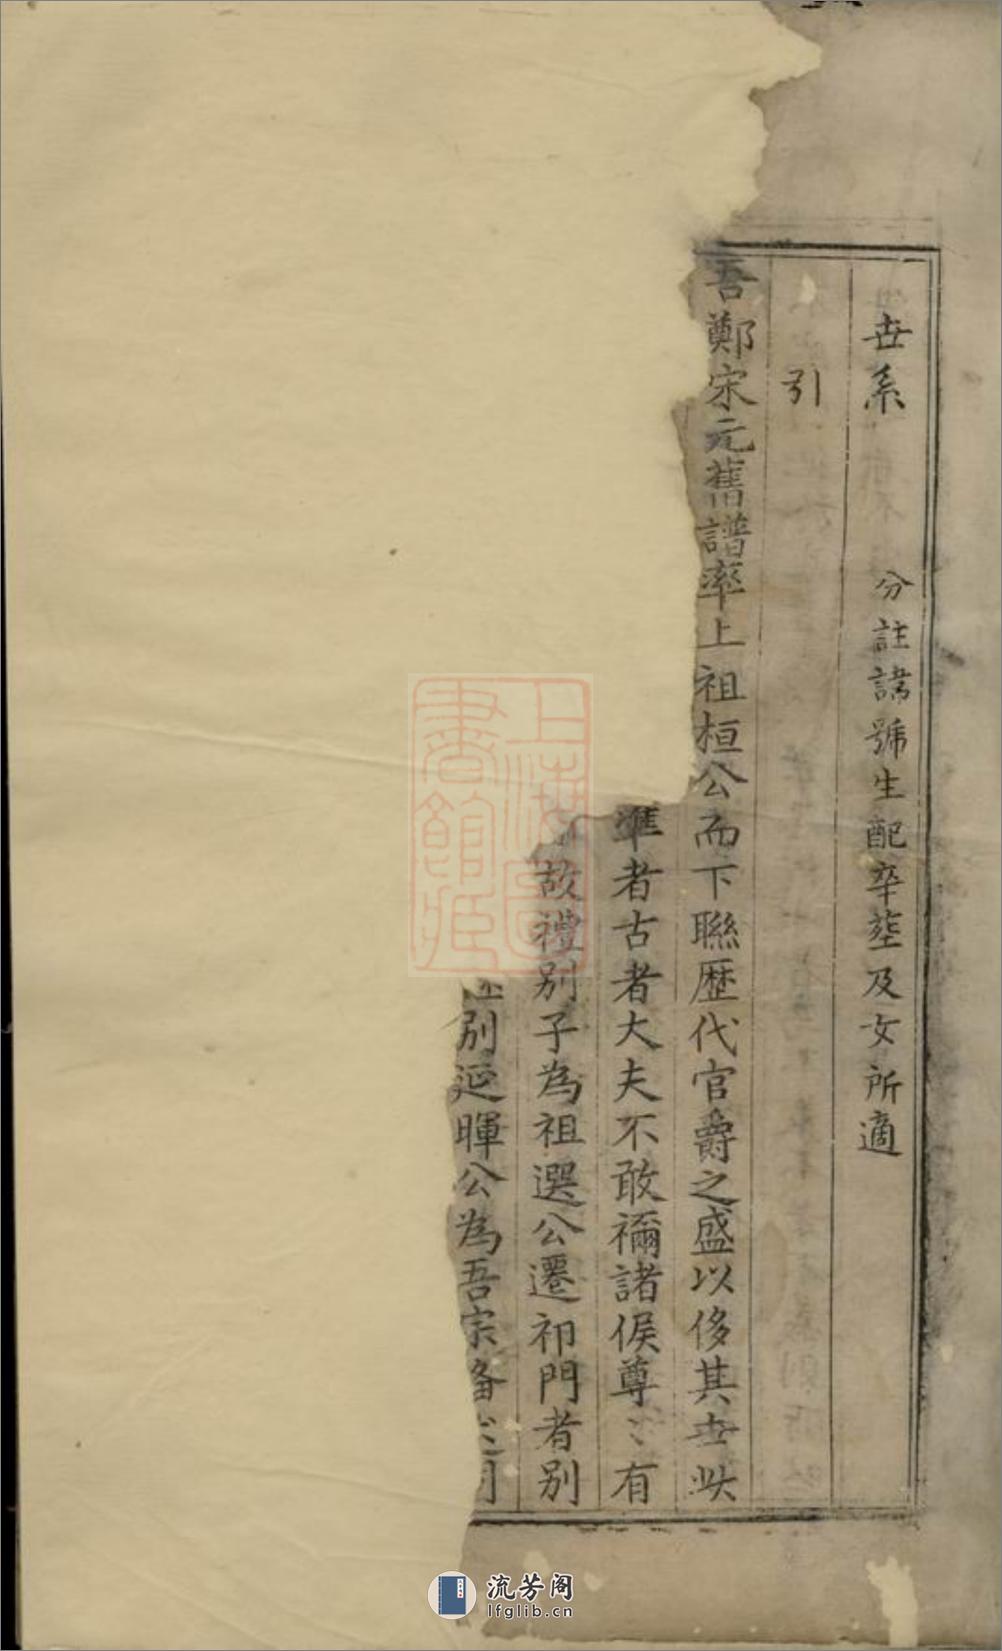 世系 分註諱號生配卒塟及女所適
引
吾鄭宋元舊譜率上祖桓公而下聯歷代官爵之盛以侈其世㳄
準者古者大夫不敢禰諸侯尊〻有
故禮別子為祖選公遷祁門者別
別延暉公為吾宗
上海圖書館藏
流芳阁
lfglib.cn